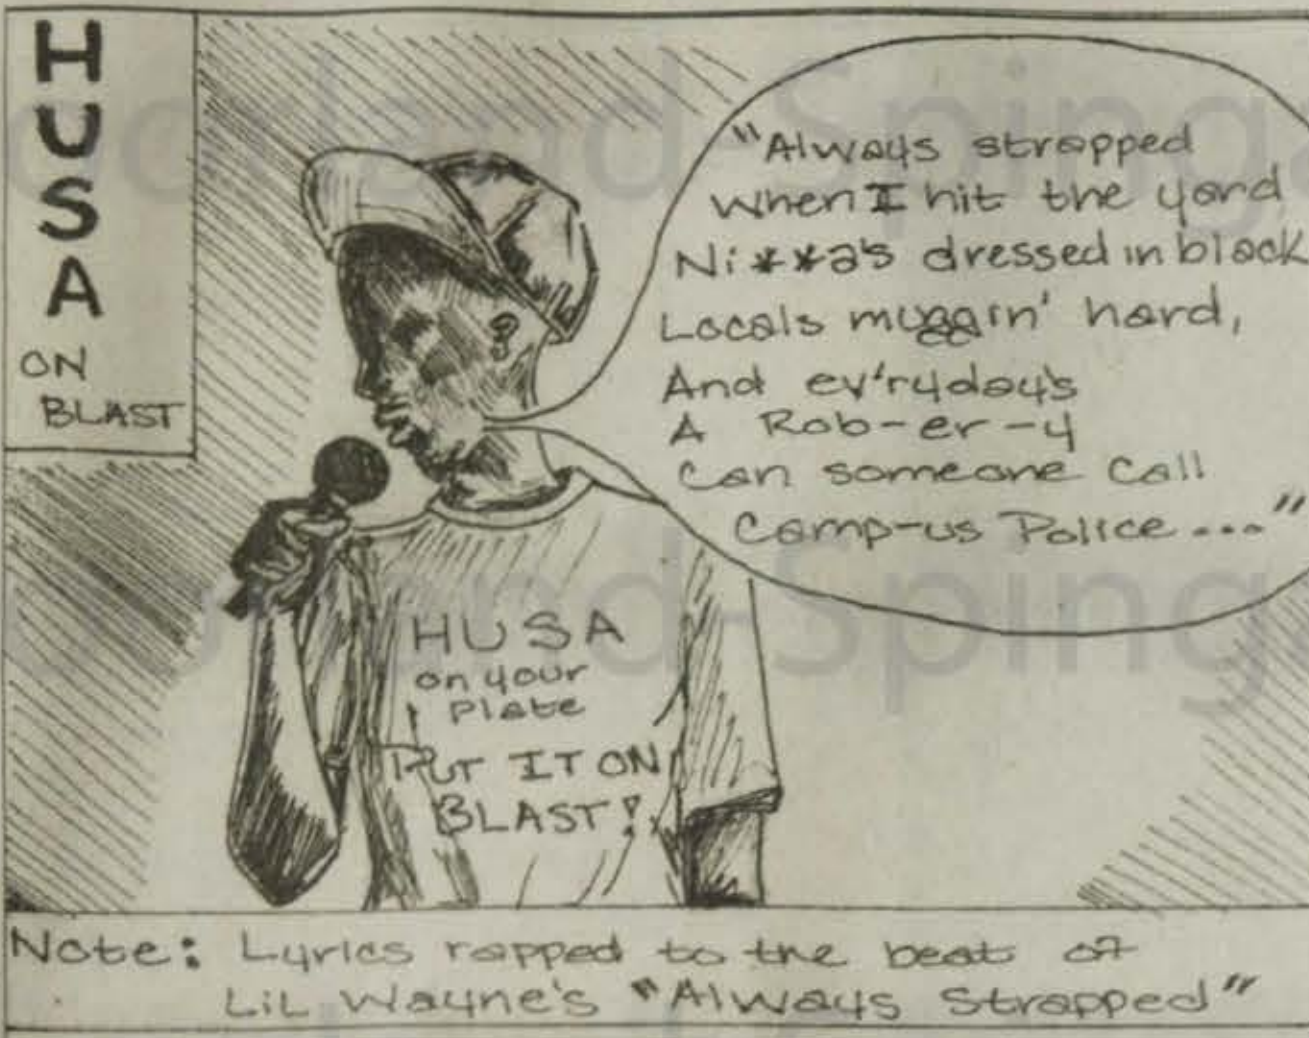 H
U
S
A
ON
BLAST
"Always strapped
when I hit the yard
Ni**a's dressed in black
Locals muggin' hard,
And ev'ryday's
A Rob-er-y
Can someone call
Camp-us Police ..."
HUSA
on your
plate
PUT IT ON
BLAST!
Note: Lyrics rapped to the beat of
LiL Wayne's "Always Strapped"